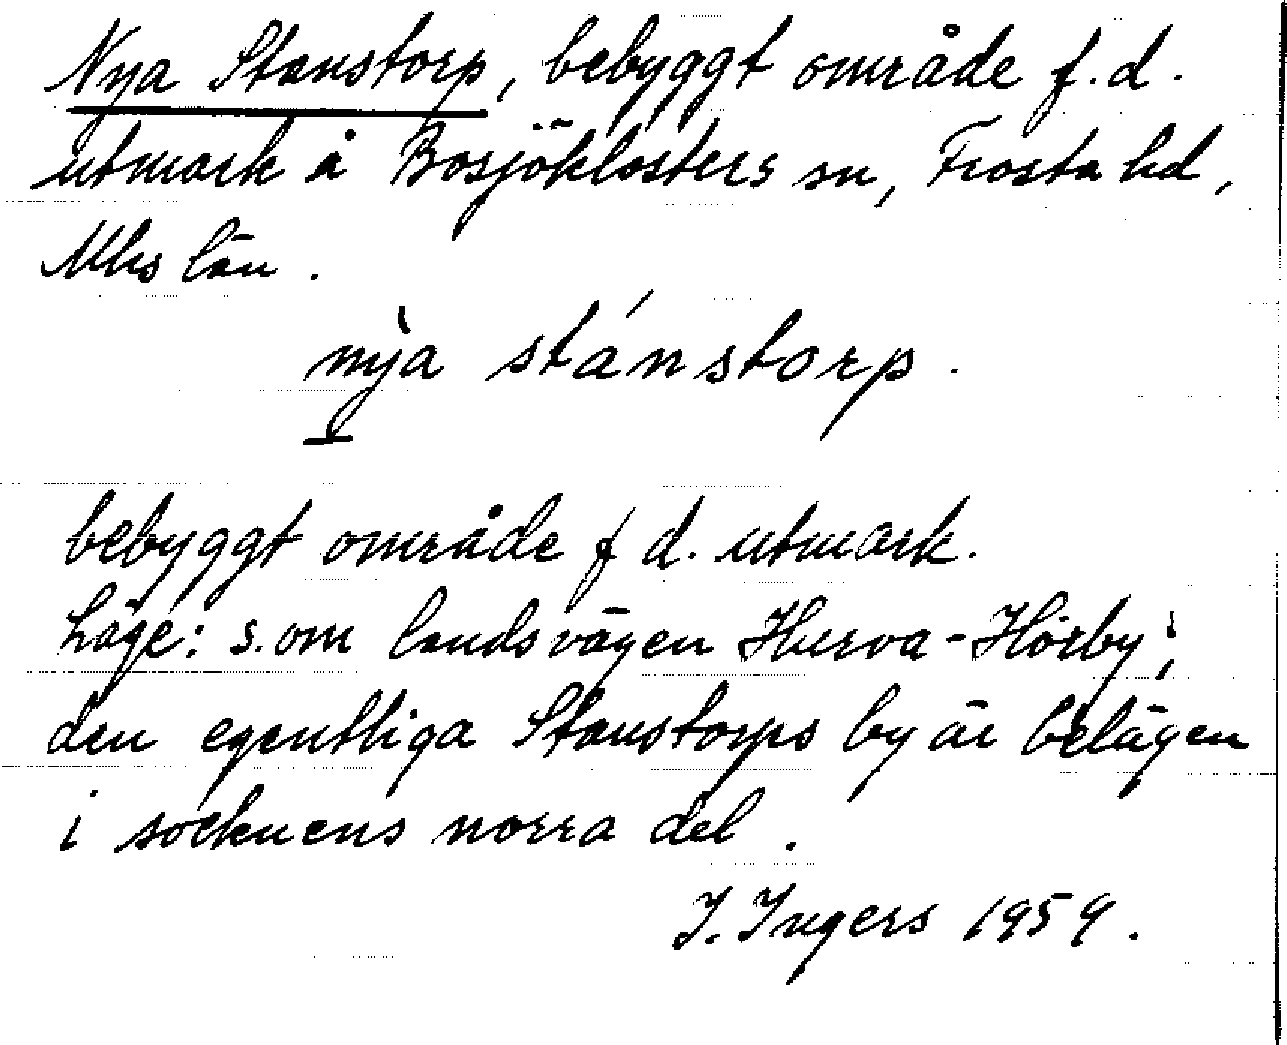 Nya Stanstorp, bebyggt område f.d.
utmark å Bosjöklosters sn, Frosta hd,
Mhs län.
nỳa stánstorp.
bebyggt område f d. utmark.
Läge: s.om landsvägen Hurva-Hörby;
den egentliga Stanstorps by är belägen
i socknens norra del.
I. Ingers 1959.